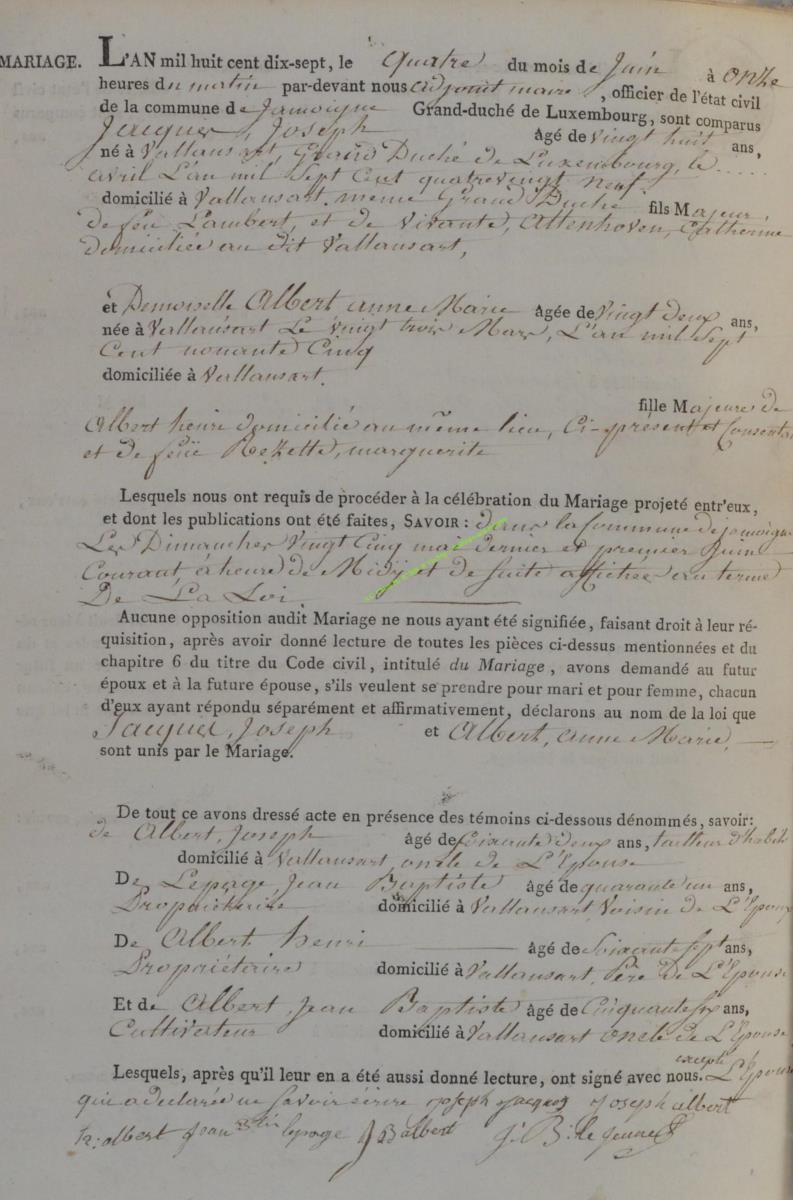 MARIAGE. L'AN mil huit cent dix-sept, le quatre du mois de Juin à onze
heures du matin par-devant nous adjoint maire, officier de l'état civil
de la commune de Jamoigne Grand-duché de Luxembourg, sont comparus
Jacques, Joseph âgé de vingt huit ans,
né à Vallansart, Grand Duché de Luxembourg, le .....
avril L'an mil Sept Cent quatrevingt neuf.
domicilié à Vallansart. meme Grand Duché fils Majeur,
de feu Lambert, et de Vivante, Attenhoven, Catherine
domiciliée au dit Vallansart,
et Demoiselle Albert, anne Marie âgée de Vingt deux ans,
née à Vallansart Le vingt trois Mars, L'an mil Sept
Cent nonante Cinq
domiciliée à Vallansart.
fille Majeure de
Albert henri domicilié au même lieu, Ci-présent et Consentant
et de feüe Rezette, marguerite
Lesquels nous ont requis de procéder à la célébration du Mariage projeté entr'eux,
et dont les publications ont été faites, SAVOIR : dans la Commune de jamoigne
Les Dimanches Vingt Cinq mai dernier et premier Juin
Courant à heure de Midi et de suite affichée au terme
De La Loi
Aucune opposition audit Mariage ne nous ayant été signifiée, faisant droit à leur ré-
quisition, après avoir donné lecture de toutes les pièces ci-dessus mentionnées et du
chapitre 6 du titre du Code civil, intitulé du Mariage, avons demandé au futur
époux et à la future épouse, s'ils veulent se prendre pour mari et pour femme, chacun
d'eux ayant répondu séparément et affirmativement, déclarons au nom de la loi que
Jacques, Joseph et Albert, anne Marie,
sont unis par le Mariage.
De tout ce avons dressé acte en présence des témoins ci-dessous dénommés, savoir:
de Albert, Joseph âgé de soixante deux ans, tailleur d'habits
domicilié à Vallansart, oncle de L'Epouse
De Lepage, Jean Baptiste âgé de quarante un ans,
Propriétaire domicilié à Vallansart Voisin de L'Epouse
De Albert henri âgé de Soixante Sept ans,
Propriétaire domicilié à Vallansart, Père de L'Epouse
Et de Albert, Jean Baptiste âgé de Cinquante six ans,
Cultivateur domicilié à Vallansart oncle de L'Epouse
Lesquels, après qu'il leur en a été aussi donné lecture, ont signé avec nous. excepté L'Epouse
qui a declarée ne Savoir écrire joseph jacques joseph albert
h: albert jean lepage J B albert J: B: le jeune